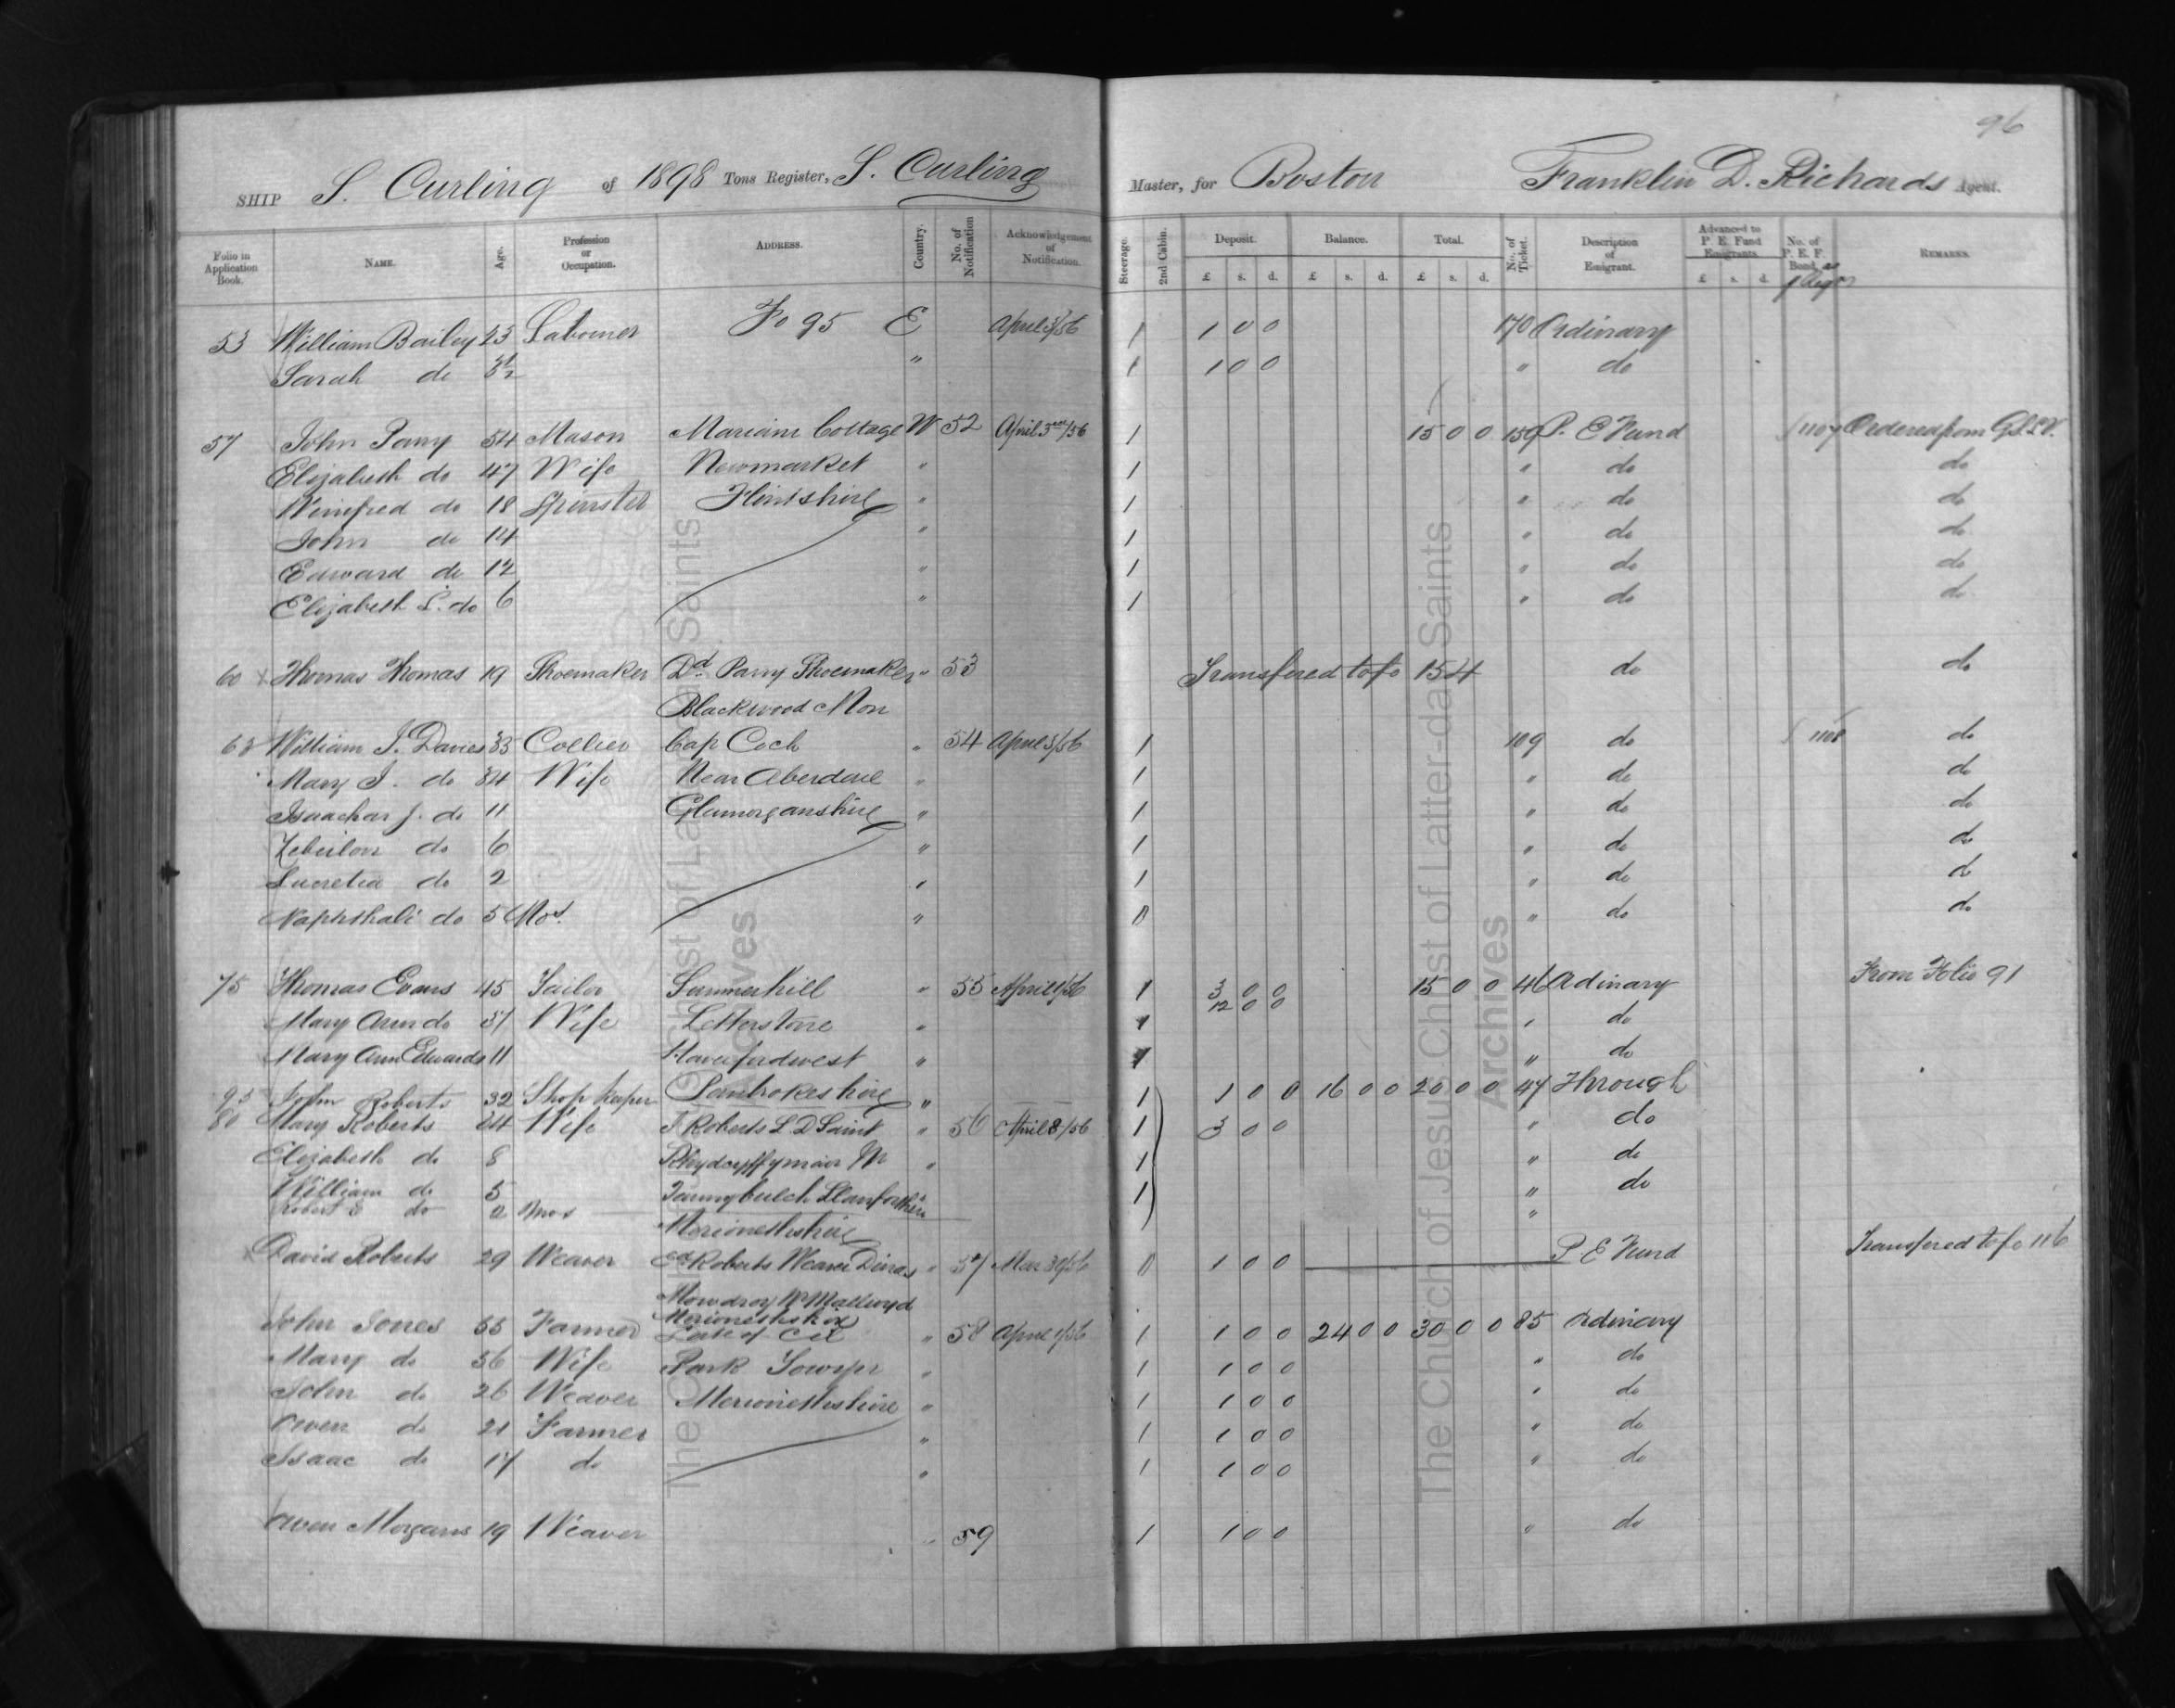 96
SHIP S. Curling of 1898 Tons Register, S. Curling Master, for Boston Franklin D. Richards Agent.
Folio in Application Book. NAME. Age. Profession or Occupation. ADDRESS. Country. No. of Notification Acknowledgement of Notification. Steerage. 2nd Cabin. Deposit. £ s. d. Balance. £ s. d. Total. £ s. d. No. of Ticket. Description of Emigrant. Advanced to P. E. Fund Emigrants £ s. d. No. of P. E. F. Bond. REMARKS.
53 William Bailey 23 Labourer Fo 95 E April 3/56 1 1 0 0 170 Ordinary
Sarah do " 1 1 0 0 " do
57 John Parry 54 Mason Mariam Cottage W 52 April 3rd/56 1 15 0 0 159 P. E Fund 1107 Ordered from G.S.L.V.
Elizabeth do 47 Wife Newmarket " 1 " do do
Winifred do 18 Spinster Flintshire " 1 " do do
John do 14 " 1 " do do
Edward do 12 " 1 " do do
Elizabeth L. do 6 " 1 " do do
60 Thomas Thomas 19 Shoemaker Dd Parry Shoemaker " 53 Transfered to fo 154 do do
Blackwood Mon
63 William J. Davies 35 Collier Cap Coch " 54 April 3/56 1 109 do 1108 do
Mary J. do 34 Wife Near Aberdare " 1 " do do
Isaachar J. do 11 Glamorganshire " 1 " do do
Zebulon do 6 " 1 " do do
Lucretia do 2 " 1 " do do
Naphthali do 5 Mos. " 0 " do do
75 Thomas Evans 45 Tailor Summerhill " 55 April 1/56 1 3 0 0 15 0 0 46 Ordinary From Folio 91
12 0 0
Mary Ann do 51 Wife Letterstone " 1 " do
Mary Ann Edwards 11 Haverfordwest " 1 " do
95 John Roberts 32 Shop keeper Pembrokeshire " 1 1 0 0 16 0 0 20 0 0 47 Through
80 Mary Roberts 24 Wife J. Roberts L. D Saint " 56 April 8/56 1 3 0 0 " do
Elizabeth do 8 " 1 " do
William do 5 Llanfachin 1 " do
Robert E do 2 mos "
Merionethshire
David Roberts 29 Weaver Ed Roberts Weaver Dinas " 57 Mar 30/56 0 1 0 0 P E Fund Transfered to fo 116
Mowdroy N Mallwyd
Merionethshire
John Jones 55 Farmer " 58 April 1/56 1 1 0 0 24 0 0 30 0 0 85 Ordinary
Mary do 56 Wife Park Towyn " 1 1 0 0 " do
John do 26 Weaver Merionethshire " 1 1 0 0 " do
Owen do 21 Farmer " 1 1 0 0 " do
Isaac do 17 do " 1 1 0 0 " do
Owen Morgans 19 Weaver " 59 1 1 0 0 " do
The Church of Jesus Christ of Latter-day Saints
Archives
The Church of Jesus Christ of Latter-day Saints
Archives